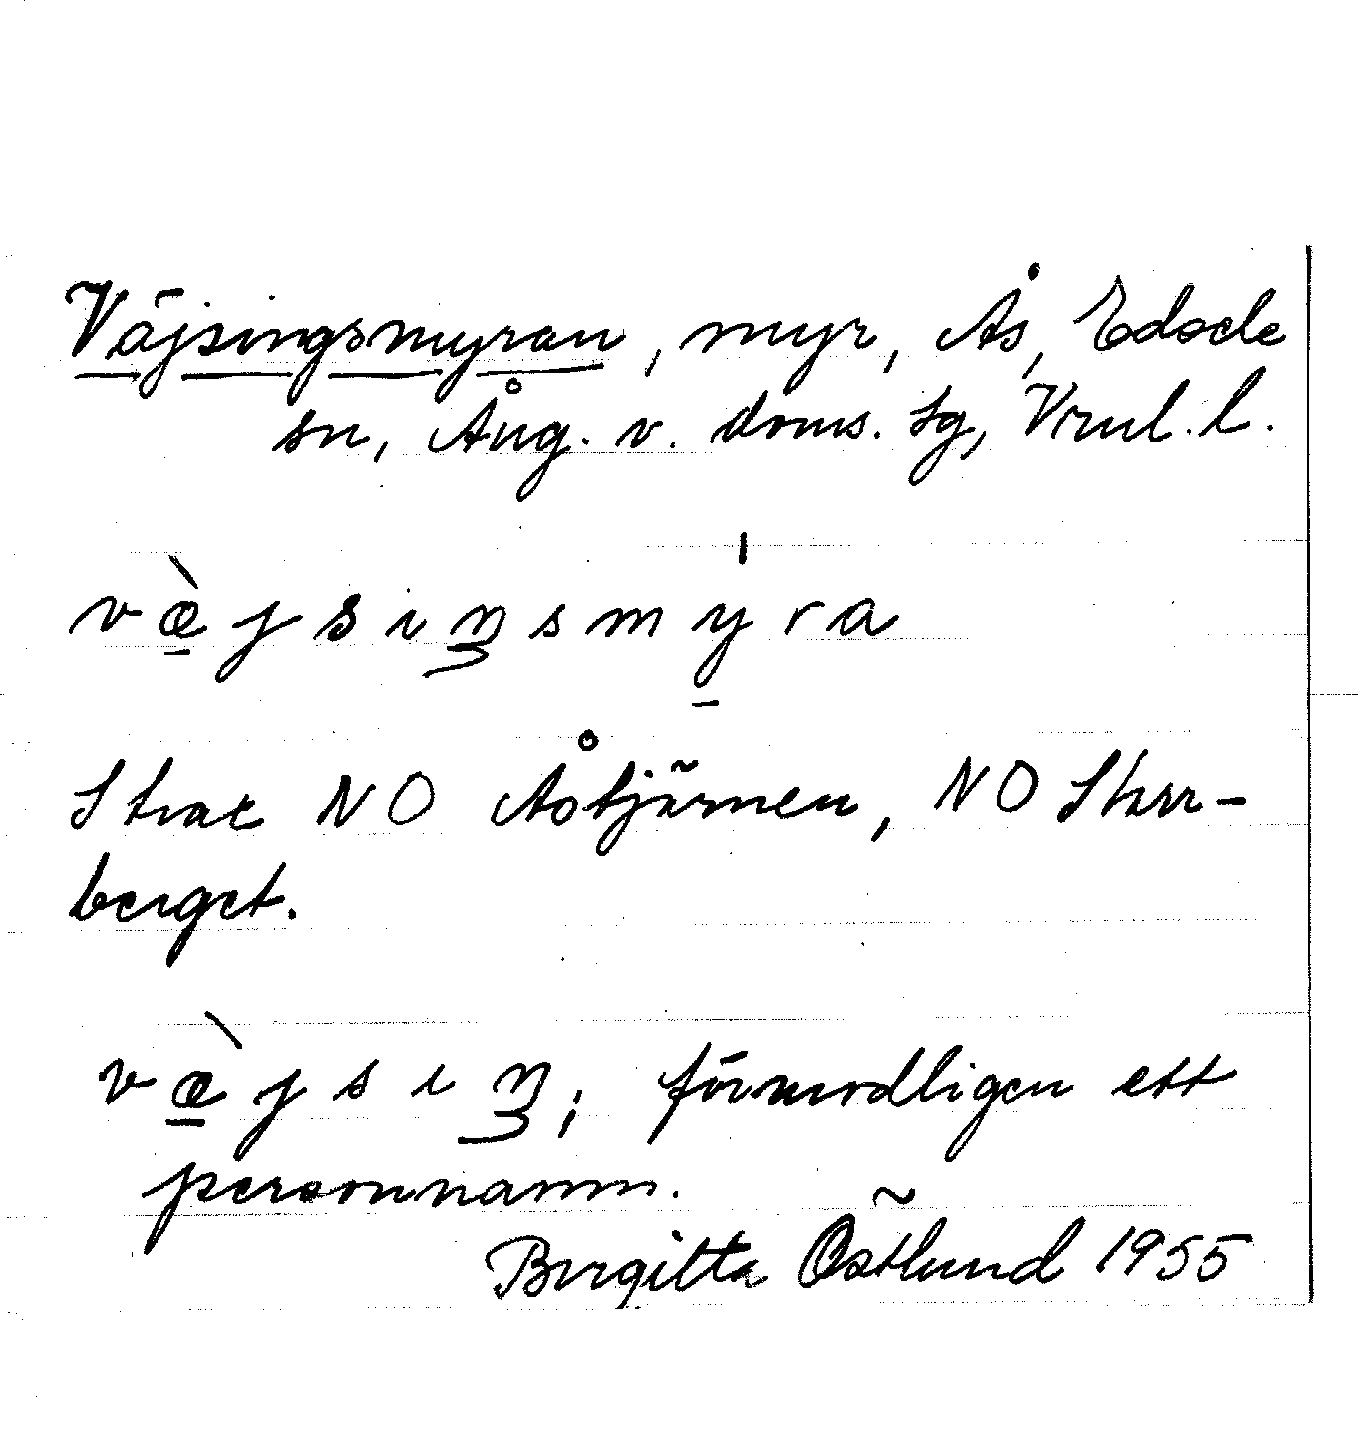 Väjsingsmyran, myr, Ås, Edsele
sn, Ång. v. doms. sg, Vrnl. l.
væ̀jsiŋsmy̍ra
Strax NO Åstjärnen, NO Storr-
berget.
væ̀jsiŋ; förmodligen ett
personnamn.
Birgitta Östlund 1955